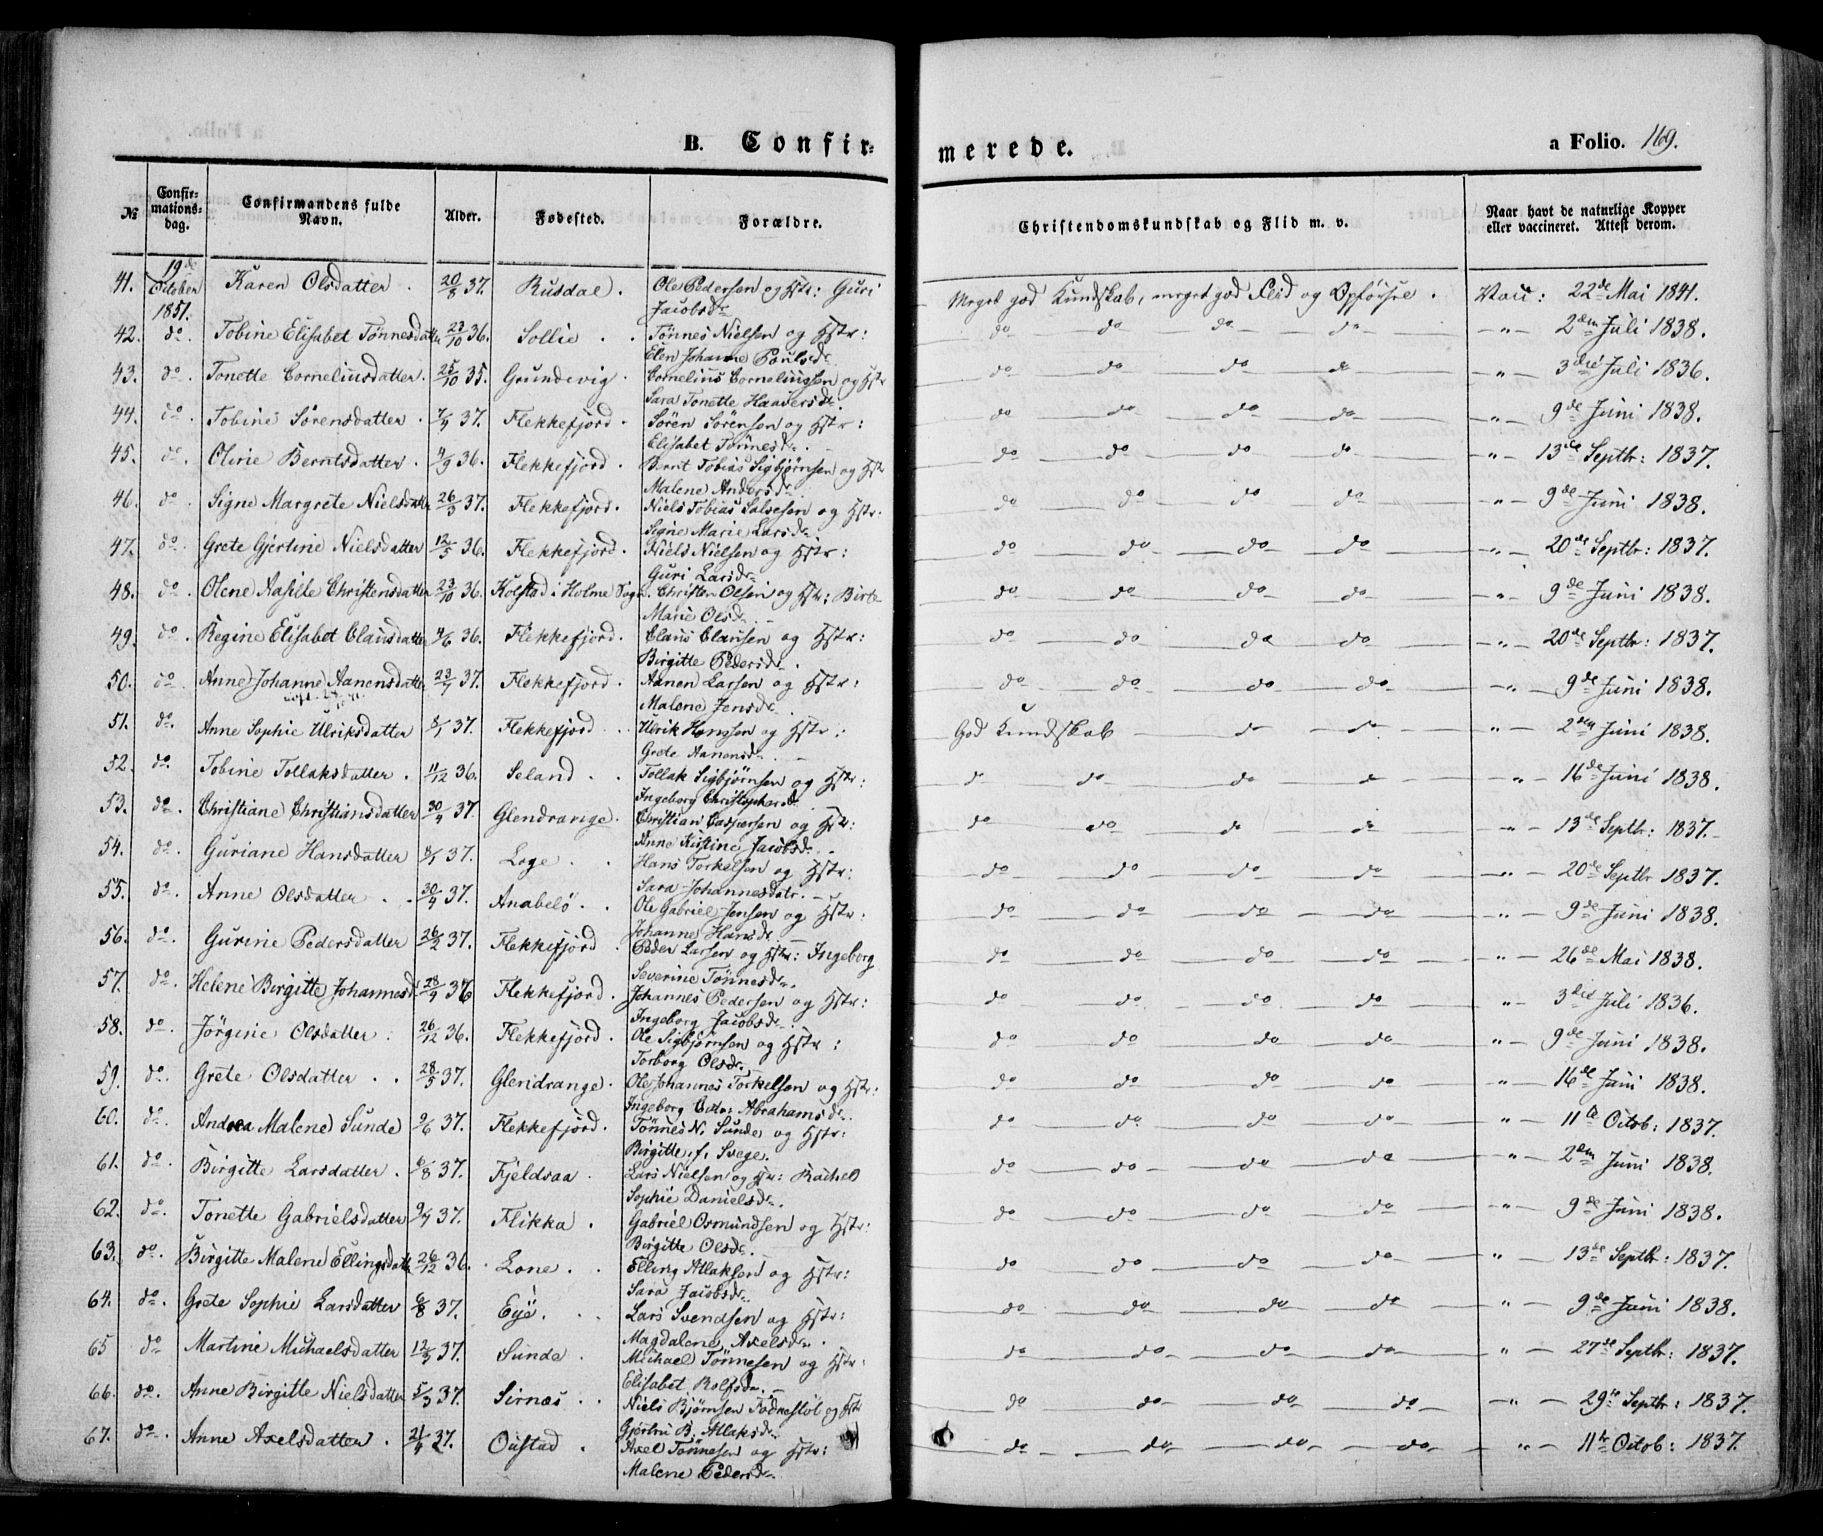 B. Confirmerede. a Folio. 169.
№ Confirmationsdag. Confirmandens fulde Navn. Alder. Fødested. Forældre. Christendomskundskab og Flid m. v. Naar havt de naturlige Kopper eller vaccineret. Attest derom.
41. 19de October 1851. Karen Olsdatter. 20/8 37. Rusdal. Ole Pedersen og Hstr: Guri Jacobsdr. Meget god Kundskab, meget god Flid og Opførsel. Vacc: 22de Mai 1841.
42. do. Tobine Elisabet Tønnesdatter 23/10 36. Sollie. Tønnes Nielsen og Hstr: Elen Johanne Poulsdr. do do do do " 2den Juli 1838.
43. do. Tonette Corneliusdatter. 25/10 35. Grundevig. Cornelius Corneliussen og Hstr Sara Tonette Haaversdr. do do do do " 3die Juli 1836.
44. do Tobine Sørensdatter. 7/4 37. Flekkefjord. Søren Sørensen og Hstr: Elisabet Tønnesdr. do do do do " 9de Juni 1838.
45. do. Oline Berntsdatter. 4/9 36. Flekkefjord. Bernt Tobias Sigbjørnsen og Hstr Malene Andersdr. do do do do " 13de Septbr: 1837.
46. do Signe Margrete Nielsdatter 26/3 37. Flekkefjord. Niels Tobias Salvesen og Hstr: Signe Marie Larsdr. do do do do " 9de Juni 1838.
47. do. Grete Gjertine Nielsdatter 12/5 36. Flekkefjord. Niels Nielsen og Hstr: Guri Larsdr. do do do do " 20de Septbr: 1837.
48. do. Olene Aasille Christensdatter 23/10 36. Kolstad i Holme Sogn. Christen Olsen og Hstr: Birte Marie Olsdr. do do do do " 9de Juni 1838.
49. do. Regine Elisabet Clausdatter 4/6 36. Flekkefjord. Claus Clausen og Hstr: Birgitte Pedersdr. do do do do " 20de Septbr: 1837.
50. do Anne Johanne Aanensdatter 23/4 37. Flekkefjord. Aanen Larsen og Hstr: Malene Jensdr. do do do do " 9de Juni 1838.
51. do. Anne Sophie Ulriksdatter 8/1 37. Flekkefjord. Ulrik Hanssen og Hstr: Grete Aanensdr. God Kundskab do do. " 2den Juni 1838.
52. do. Tobine Tollaksdatter. 11/12 36. Seland. Tollak Sigbjørnsen og Hstr: Ingeborg Christophersdr. do do do do " 16de Juni 1838.
53. do. Christiane Christiansdatter 30/4 37. Glendrange. Christian Caspersen og Hstr: Anne Kistine Jacobsdr. do do do do " 13de Septbr: 1837.
54. do. Guriane Hansdatter 8/1 37. Loge. Hans Torkelsen og Hstr: Sara Johannesdatr. do do do do " 20de Septbr 1837.
55. do. Anne Olsdatter. 30/4 37. Anabelø. Ole Gabriel Jensen og Hstr: Johanne Hansdr. do do do do " 9de Juni 1838.
56. do. Gurine Pedersdatter 26/2 37. Flekkefjord. Peder Larsen og Hstr: Ingeborg Severine Tønnesdr. do do do do " 26de Mai 1838.
57. do. Helene Birgitte Johannesdr 28/4 36 Flekkefjord. Johannes Pedersen og Hstr: Ingeborg Jacobsdr. do do do do " 3die Juli 1836.
58. do. Jørgine Olsdatter. 26/12 36. Flekkefjord. Ole Sigbjørnsen og Hstr: Torborg Olsdr. do do do do " 9de Juni 1838.
59. do. Grete Olsdatter. 28/5 37. Glendrange. Ole Johannes Torkelsen og Hstr: Ingeborg Abrahamsdr. do do do do " 16de Juni 1838.
60. do. Andrea Malene Sunde 9/6 37. Flekkefjord. Tønnes N. Sunde og Hstr: Birgitte f. Svege. do do do do " 11te Octob: 1837.
61. do. Birgitte Larsdatter. 6/8 37. Fjeldsaa. Lars Nielsen og Hstr: Rachel Sophie Danielsdr. do do do do " 2den Juni 1838.
62. do. Tonette Gabrielsdatter 9/4 37. Flikka. Gabriel Osmundsen og Hstr: Birgitte Olsdr. do do do do " 9de Juni 1838.
63. do. Birgitte Malene Ellingsdattr 26/12 36. Lone. Elling Atlaksen og Hstr: Sara Jacobsdr. do do do do " 13de Septbr: 1837.
64. do. Grete Sophie Larsdatter 6/8 37. Eye. Lars Svendsen og Hstr: Magdalene Axelsdr. do do do do " 9de Juni 1838.
65 do Martine Michaelsdatter 12/3 37. Sunde. Michael Tønnesen og Hstr: Elisabet Rolfsdr. do do do do " 27de Septbr: 1837.
66. do. Anne Birgitte Nielsdatter 5/3 37. Sirnæs. Niels Bjørnsen Fodnestøl og Hstr Gjertru B. Atlaksdr. do do do do " 29de Septbr: 1837.
67. do. Anne Axelsdatter. 21/4 37. Oustad. Axel Tønnesen og Hstr: Malene Pedersdr. do do do do " 11te Octob: 1837.